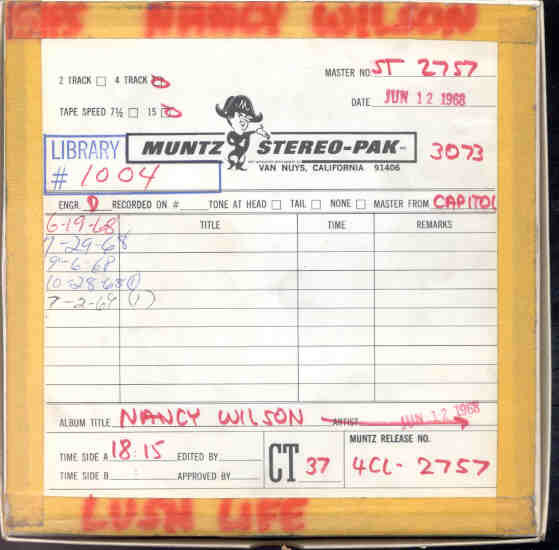 NANCY WILSON
2 TRACK 4 TRACK
MASTER NO. ST 2757
TAPE SPEED 7½ 15
DATE JUN 12 1968
LIBRARY
# 1004
MUNTZ STEREO-PAK
VAN NUYS, CALIFORNIA 91406
3073
ENGR. D RECORDED ON # TONE AT HEAD TAIL NONE MASTER FROM CAPITOL
TITLE TIME REMARKS
6-19-68
7-29-68
9-6-68
10-28-68 (1)
7-2-69 (1)
ALBUM TITLE NANCY WILSON ARTIST JUN 12 1968
TIME SIDE A 18:15 EDITED BY
TIME SIDE B APPROVED BY
CT 37
MUNTZ RELEASE NO.
4CL-2757
LUSH LIFE